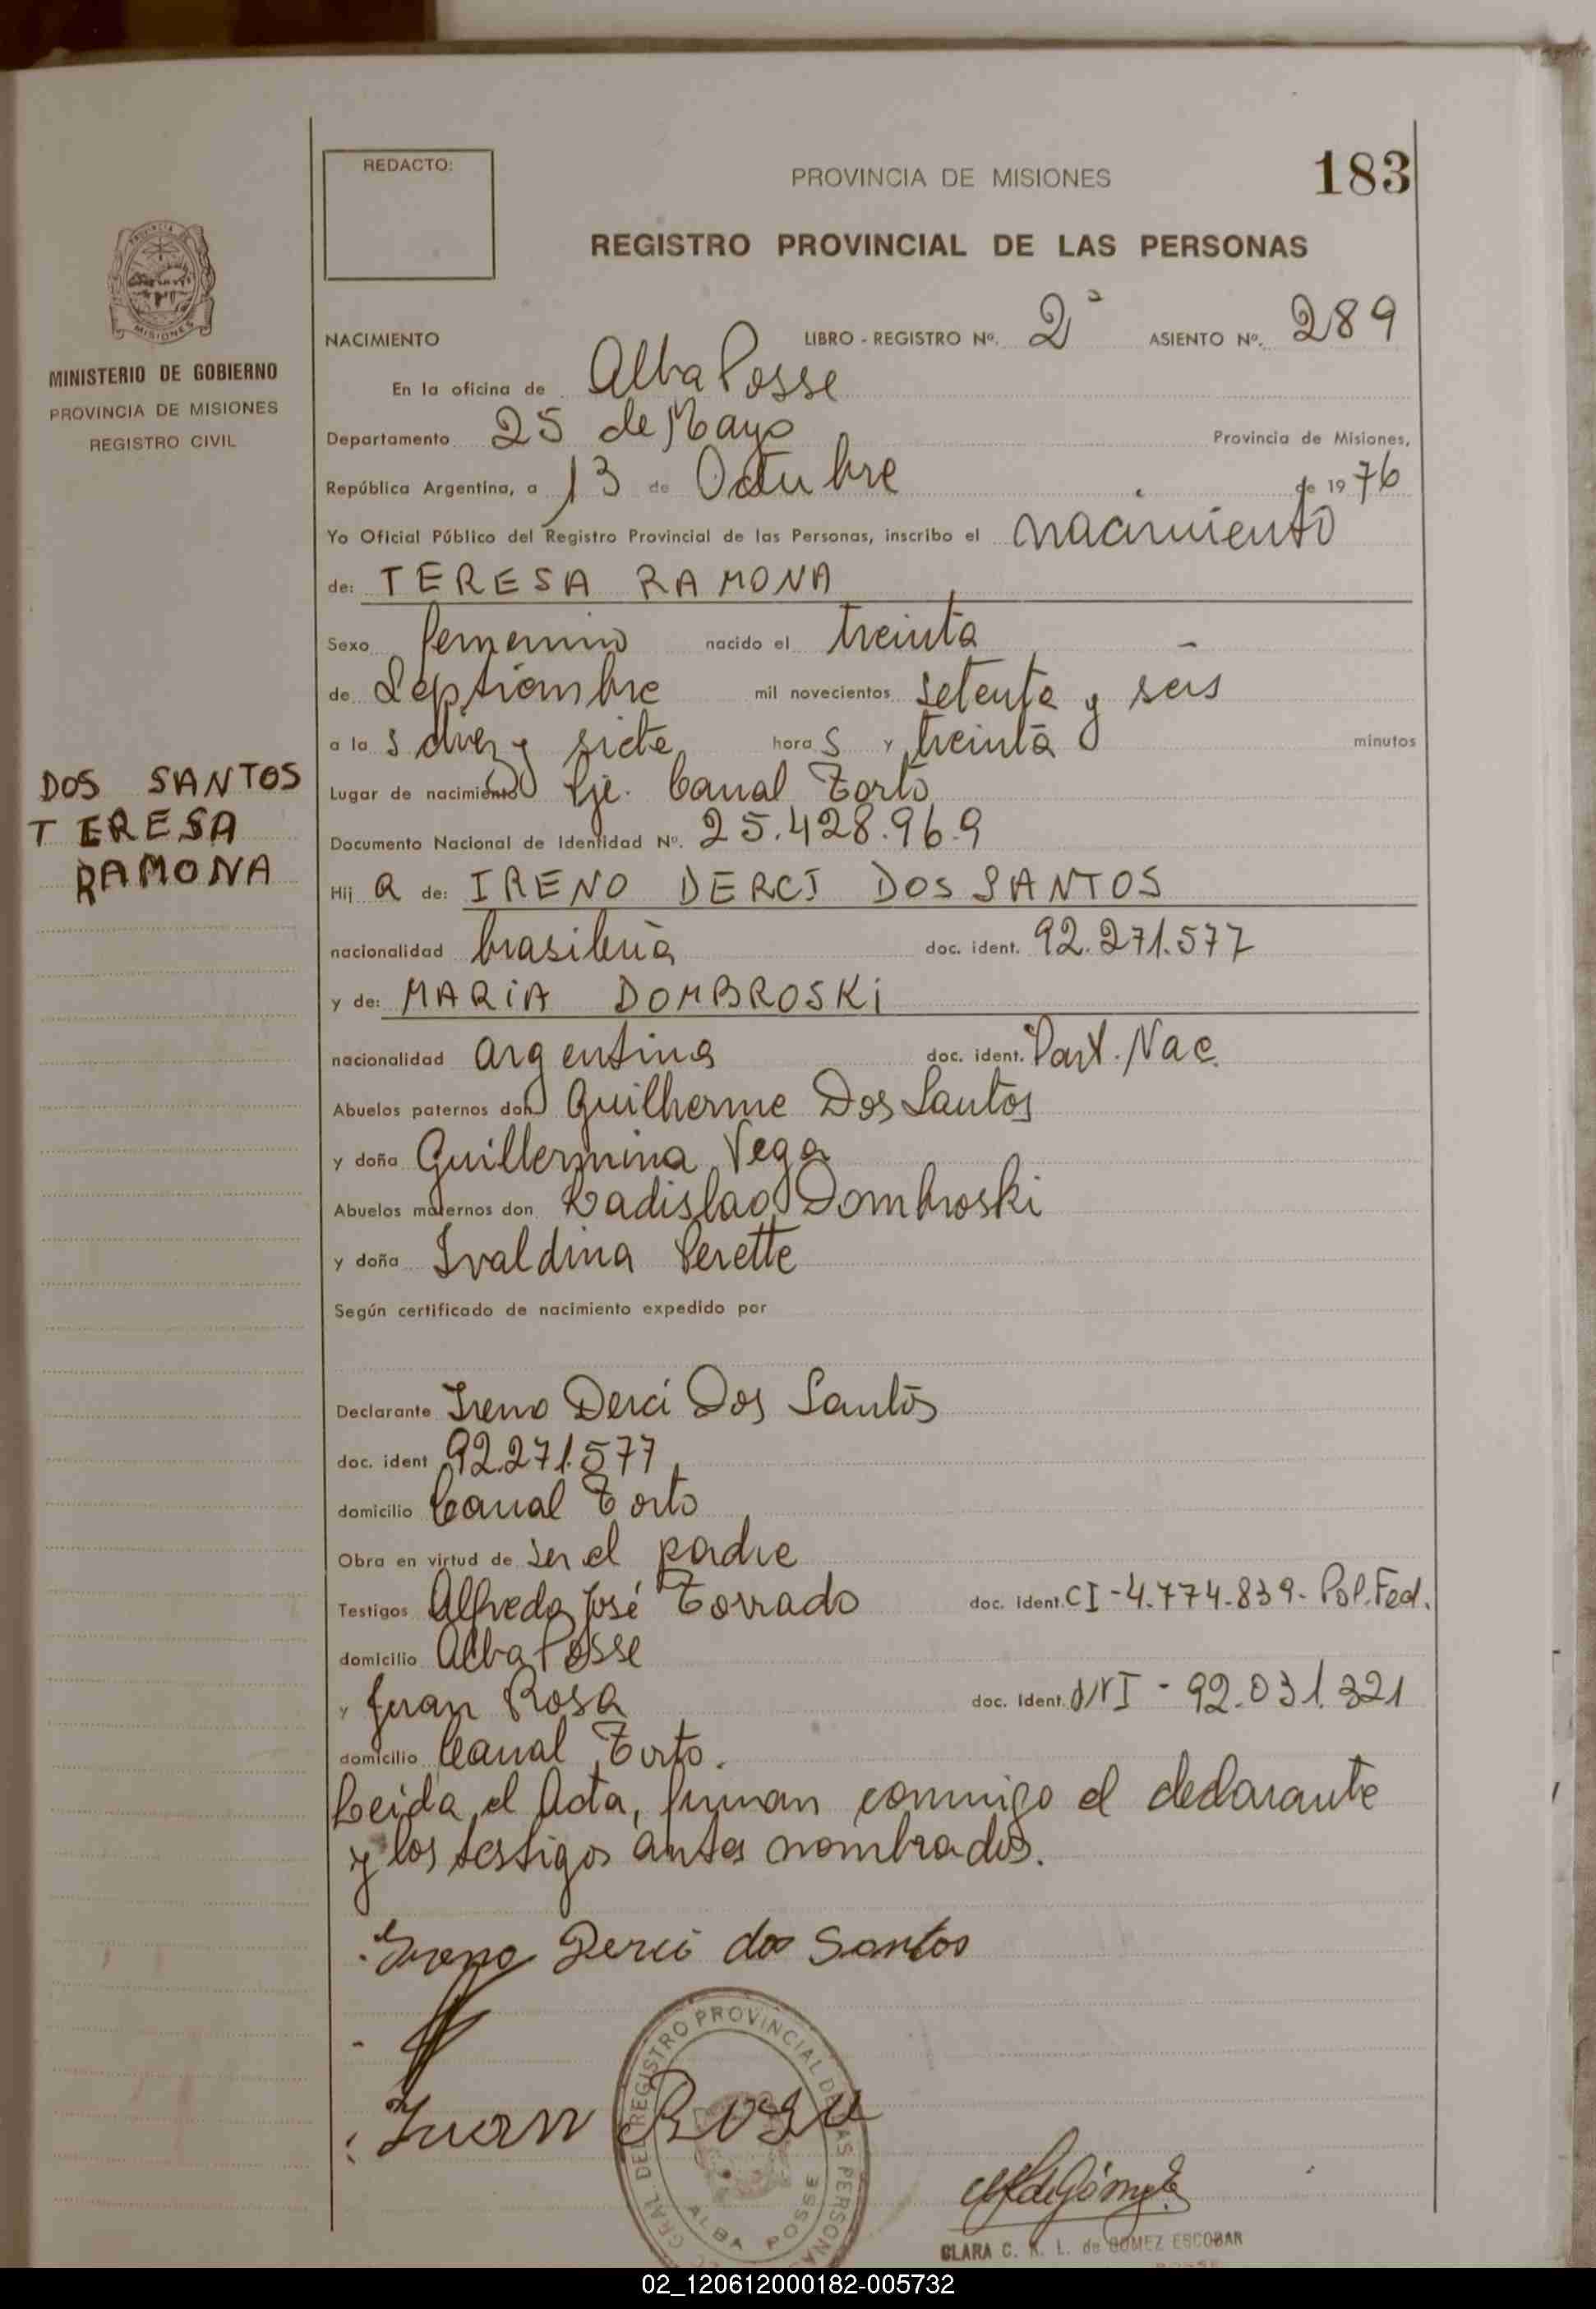 183
REDACTO:
PROVINCIA DE MISIONES
REGISTRO PROVINCIAL DE LAS PERSONAS
MISIONES
MINISTERIO DE GOBIERNO
PROVINCIA DE MISIONES
REGISTRO CIVIL
NACIMIENTO LIBRO - REGISTRO Nº. 2º ASIENTO Nº. 289
En la oficina de Alba Posse
Departamento 25 de Mayo Provincia de Misiones,
República Argentina, a 13 de Octubre de 1976
Yo Oficial Público del Registro Provincial de las Personas, inscribo el nacimiento
de: TERESA RAMONA
Sexo femenino nacido el treinta
de Septiembre mil novecientos setenta y seis
a las diez y siete horas y treinta minutos
Lugar de nacimiento Pje. Canal Torto
DOS SANTOS
TERESA
RAMONA
Documento Nacional de Identidad Nº. 25.428.969
Hija de: IRENO DERCI DOS SANTOS
nacionalidad brasileña doc. ident. 92.271.577
y de: MARIA DOMBROSKI
nacionalidad argentina doc. ident. Part. Nac.
Abuelos paternos don Guilherme Dos Santos
y doña Guillermina Vega
Abuelos maternos don Ladislao Dombroski
y doña Ivaldina Perette
Según certificado de nacimiento expedido por
Declarante Ireno Derci Dos Santos
doc. ident 92.271.577
domicilio Canal Torto
Obra en virtud de ser el padre
Testigos Alfredo José Torrado doc. ident. CI-4.774.839-Pol.Fed.
domicilio Alba Posse
y Juan Rosa doc. Ident. DNI - 92.031.321
domicilio Canal Torto.
Leida el Acta, firman conmigo el declarante
y los testigos antes nombrados.
Ireno Derci dos Santos
Juan Rosa
GRAL. DEL REGISTRO PROVINCIAL DE LAS PERSONAS
ALBA POSSE
CLARA C. K. L. de GOMEZ ESCOBAR
02_120612000182-005732